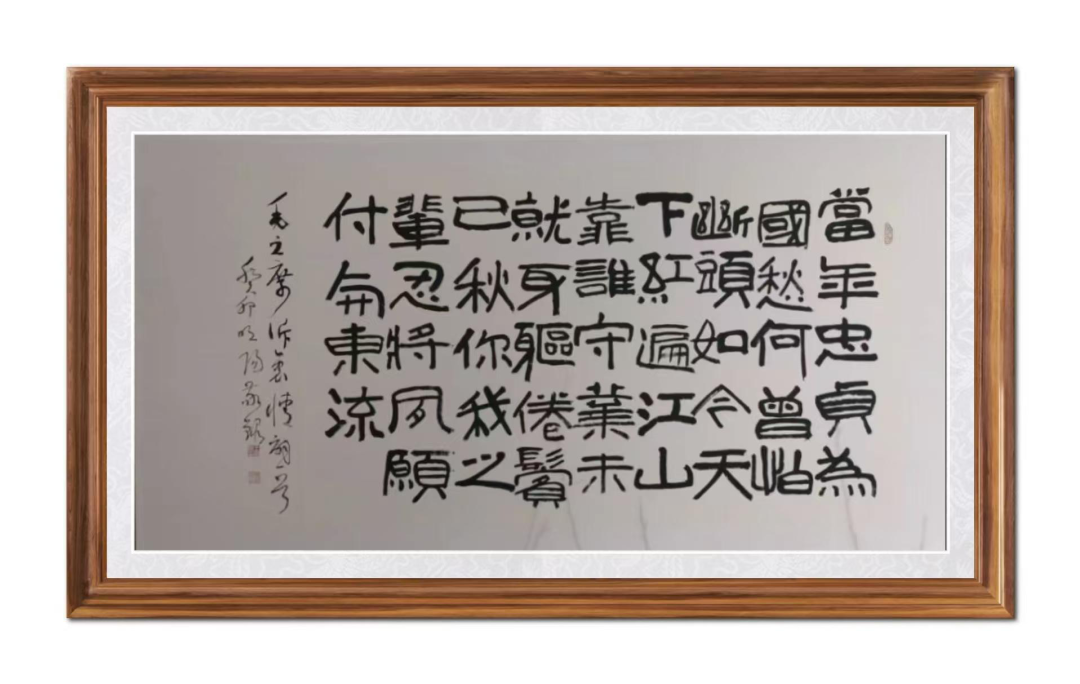 當年忠貞為
國愁何曾怕
斷頭如今天
下紅遍江山
靠誰守業未
就身軀倦鬢
已秋你我之
輩忍將夙願
付與東流
毛主席訴衷情詞一首
癸卯 陽敬錄